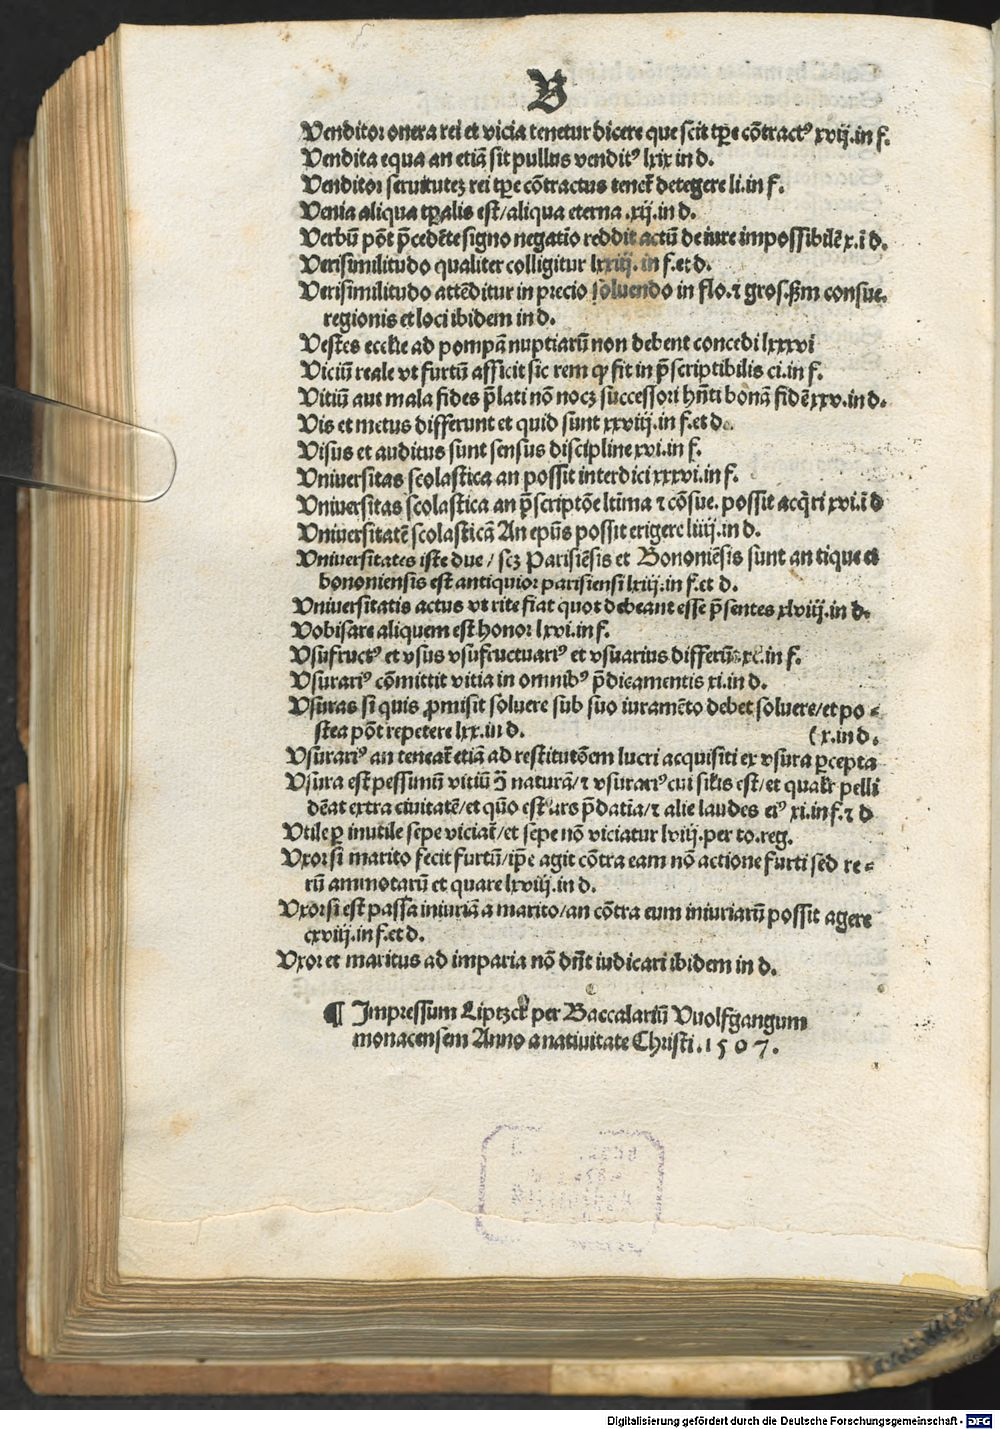 V
Venditor onera rei et vicia tenetur dicere que scit tp̄e cōtractꝰ xvij.in f.
Vendita equa an etiā sit pullus venditꝰ lxix in d.
Venditor seruitutez rei tp̄e cōtractus tenet̄ detegere li.in f.
Venia aliqua tp̄alis est/aliqua eterna .xij.in d.
Verbū pōt p̄cedēte signo negatio reddit actū de iure impossibilē x.ī d.
Verisimilitudo qualiter colligitur lxxiij. in f.et d.
Verisimilitudo attēditur in precio soluendo in flo.⁊ gros.ẜm consue.
regionis et loci ibidem in d.
Vestes eccłie ad pompā nuptiarū non debent concedi lxxxvi
Viciū reale vt furtū afficit sic rem qꝫ fit in p̄scriptibilis ci.in f.
Vitiū aut mala fides p̄lati nō nocꝫ successori hn̄ti bonā fidē xxv.in d.
Vis et metus differunt et quid sunt xxviij.in f.et d.
Visus et auditus sunt sensus discipline xvi.in f.
Vniuersitas scolastica an possit interdici xxxvi.in f.
Vniuersitas scolastica an p̄scriptōe łtima ⁊ cōsue. possit acq̄ri xvi.ī d
Vniuersitatē scolasticā An ep̄us possit erigere liiij.in d.
Vniuersitates iste due / scꝫ Parisiēsis et Bononiēsis sunt antique et
bononiensis est antiquior parisiensi lxiij.in f.et d.
Vniuersitatis actus vt rite fiat quot debeant esse p̄sentes xlviij.in d.
Vobisare aliquem est honor lxvi.in f.
Vsufructꝰ et vsus vsufructuariꝰ et vsuarius differūt xl.in f.
Vsurariꝰ cōmittit vitia in omnibꝰ p̄dicamentis xi.in d.
Vsuras si quis ꝓmisit soluere sub suo iuramēto debet soluere/et po-
stea pōt repetere lxx.in d. (x.in d.
Vsurariꝰ an teneat̄ etiā ad restitutōem lucri acquisiti ex vsura ꝑcepta
Vsura est pessimū vitiū ꝯ̄ naturā/⁊ vsurariꝰ cui siłis est/et qualr̄ pelli
dēat extra ciuitatē/et quō est ars p̄datia/⁊ alie laudes eiꝰ xi.in f.⁊ d
Vtile ꝑ inutile sepe viciat̄/et sepe nō viciatur lviij.per to.reg.
Vxor si marito fecit furtū/ip̄e agit cōtra eam nō actione furti sed re-
rū ammotarū et quare lxviij.in d.
Vxor si est passa iniuriā a marito/an cōtra eum iniuriarū possit agere
cxviij.in f.et d.
Vxor et maritus ad imparia nō dn̄t iudicari ibidem in d.
¶ Impressum Liptzck per Baccalariū Vuolfgangum
monacensem Anno a natiuitate Christi.1507.
Digitalisierung gefördert durch die Deutsche Forschungsgemeinschaft - DFG